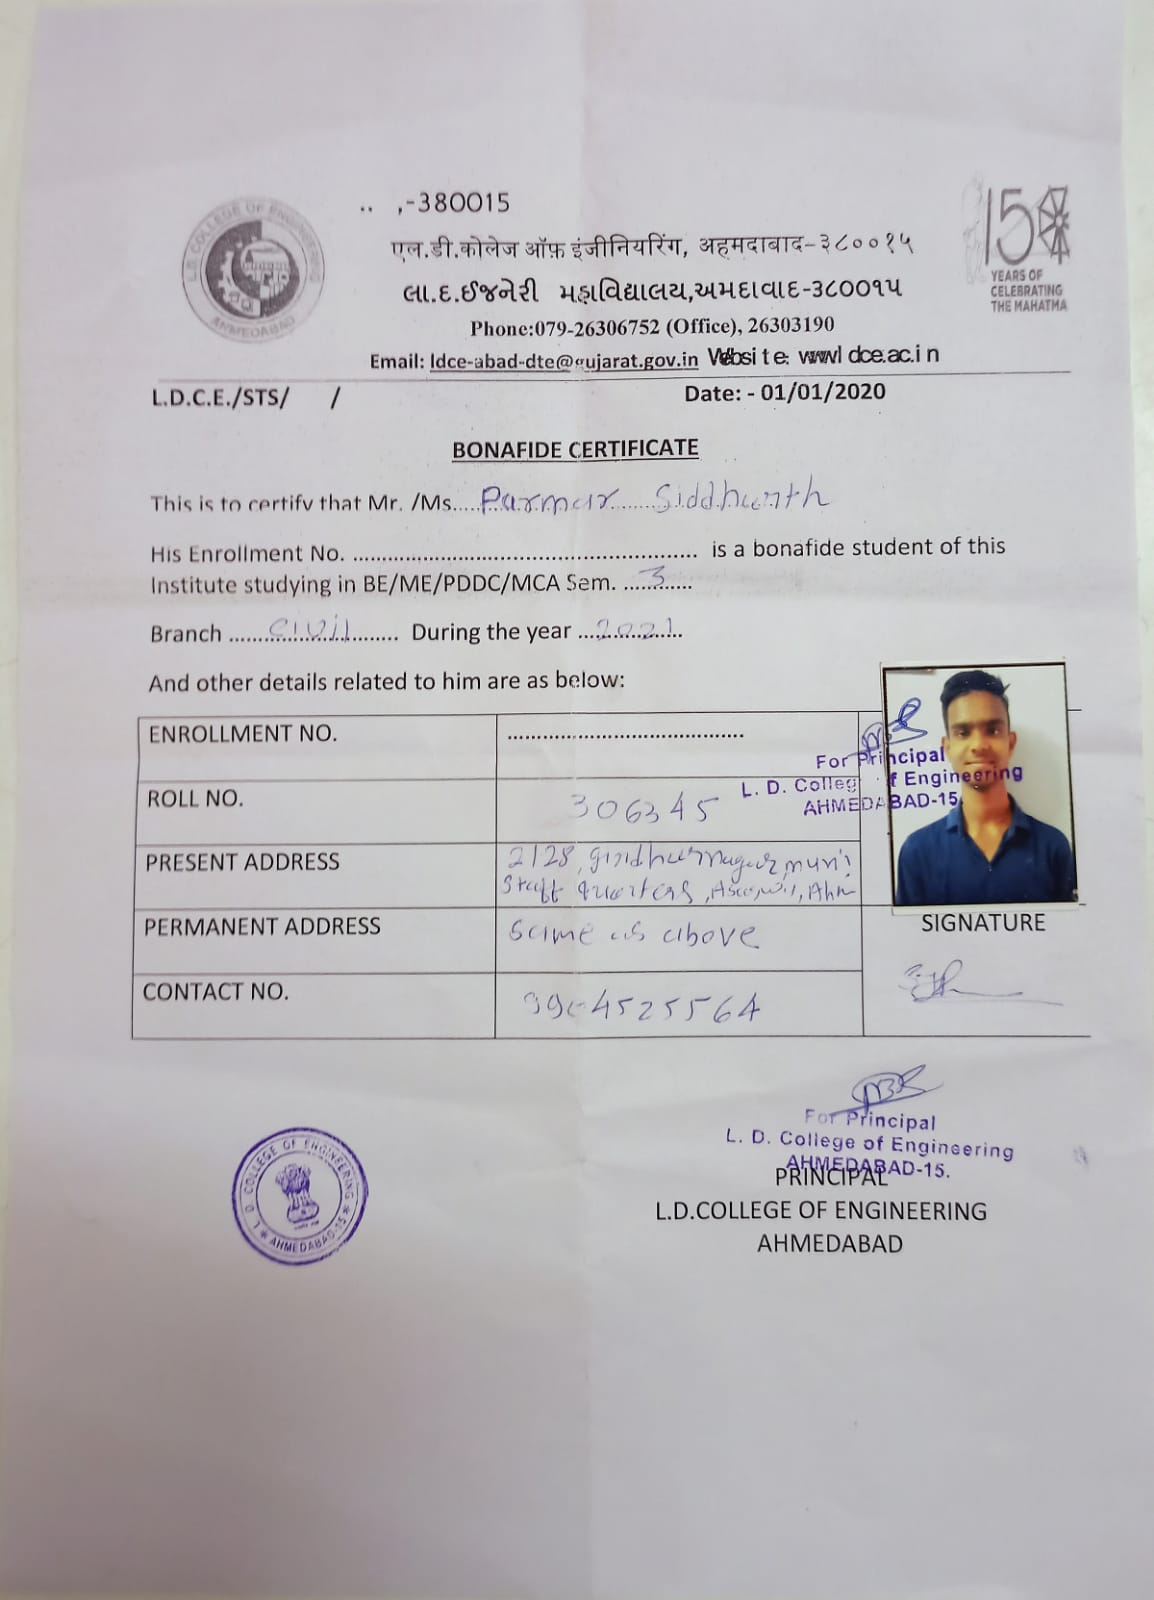 L.D. COLLEGE OF ENGINEERING
AHMEDABAD
.. ,-380015
एल.डी.कोलेज ऑफ़ इंजीनियरिंग, अहमदाबाद-३८००१५
લા.દ.ઈજનેરી મહાવિદ્યાલય,અમદાવાદ-૩૮૦૦૧૫
Phone:079-26306752 (Office), 26303190
Email: ldce-abad-dte@gujarat.gov.in Website: www.ldce.ac.in
150
YEARS OF
CELEBRATING
THE MAHATMA
L.D.C.E./STS/ /
Date: - 01/01/2020
BONAFIDE CERTIFICATE
This is to certify that Mr. /Ms..... Parmar Siddharth
His Enrollment No. .................................................... is a bonafide student of this
Institute studying in BE/ME/PDDC/MCA Sem. ...3...
Branch ...... civil ...... During the year ...2021...
And other details related to him are as below:
ENROLLMENT NO. ....................................
ROLL NO. 306345
PRESENT ADDRESS 2/28, girdharnagar, muni
staff quarters, Ahm
PERMANENT ADDRESS same as above
CONTACT NO. 4525564
For Principal
L. D. College of Engineering
AHMEDABAD-15
SIGNATURE
L. D. COLLEGE OF ENGINEERING
AHMEDABAD-15
For Principal
L. D. College of Engineering
AHMEDABAD-15.
PRINCIPAL
L.D.COLLEGE OF ENGINEERING
AHMEDABAD